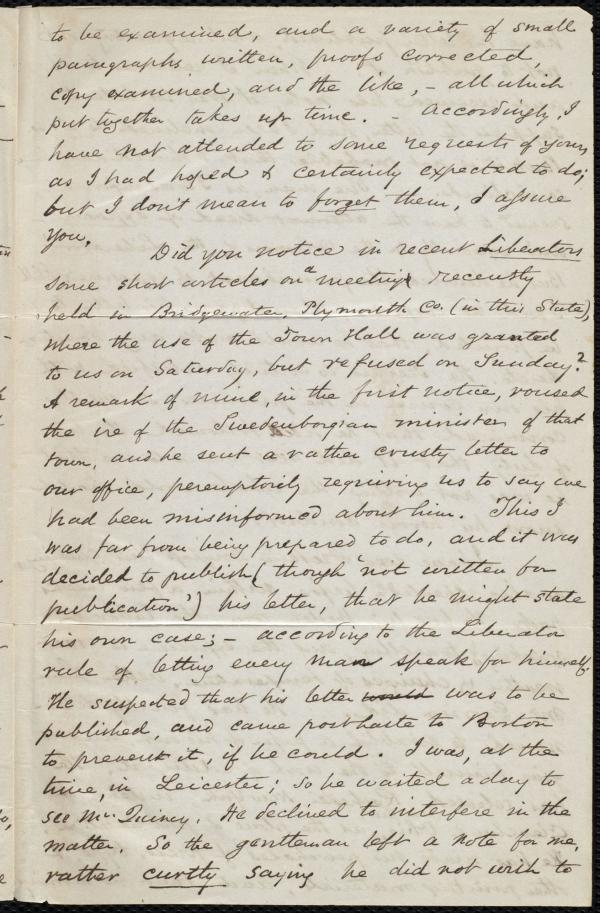 to be examined, and a variety of small
paragraphs written, proofs corrected,
copy examined, and the like, - all which
put together takes up time. - Accordingly, I
have not attended to some requests of yours,
as I had hoped & certainly expected to do;
but I don't mean to forget them, I assure
you.
Did you notice in recent Liberators
some short articles on a meeting recently
held in Bridgewater, Plymouth Co. (in this State),
where the use of the Town Hall was granted
to us on Saturday, but refused on Sunday?
A remark of mine, in the first notice, roused
the ire of the Swedenborgian minister of that
town, and he sent a rather crusty letter to
our office, peremptorily requiring us to say we
had been misinformed about him. This I
was far from being prepared to do, and it was
decided to publish (though 'not written for
publication') his letter, that he might state
his own case; - according to the Liberator
rule of letting every man speak for himself.
He suspected that his letter would was to be
published, and came posthaste to Boston
to prevent it, if he could. I was, at the
time, in Leicester; so he waited a day to
see Mr. Quincy. He declined to interfere in the
matter. So the gentleman left a note for me,
rather curtly saying he did not wish to